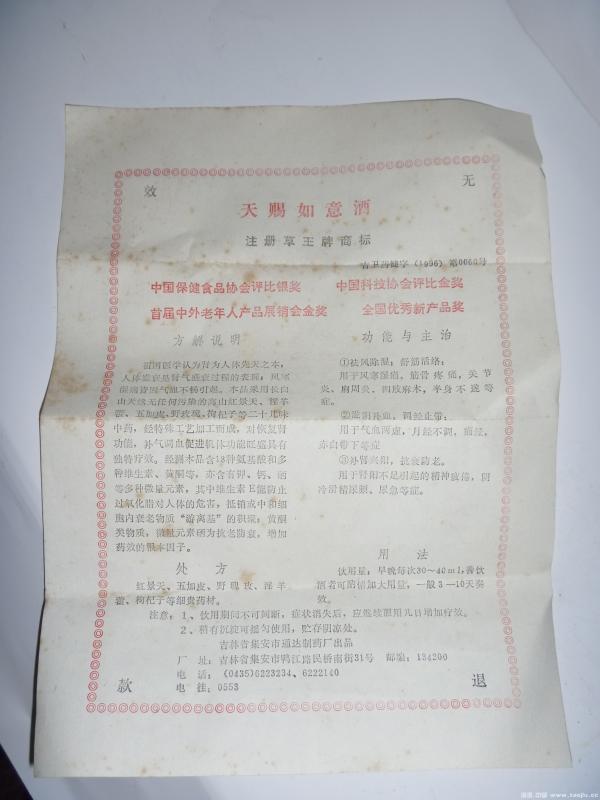 效 无
天赐如意酒
注册草王牌商标
吉卫药健字(1996)第0060号
中国保健食品协会评比银奖 中国科技协会评比金奖
首届中外老年人产品展销会金奖 全国优秀新产品奖
方解说明
祖国医学认为肾为人体先天之本,
人体盛衰是肾气盛衰过程的表现;风寒
湿痛皆因气血不畅引起。本品采用长白
山天然无任何污染的高山红景天、淫羊
藿、五加皮、野玫瑰、枸杞子等二十几味
中药,经特殊工艺加工而成,对恢复肾
功能,补气调血促进机体功能旺盛具有
独特疗效。经测本品含18种氨基酸和多
种维生素、黄酮等,亦含有钾、钙、硒
等多种微量元素,其中维生素E能防止
过氧化脂对人体的危害,抵销或中和细
胞内衰老物质“游离基”的积聚;黄酮
类物质,微量元素硒为抗老防衰,增加
药效的根本因子。
功能与主治
①祛风除湿,舒筋活络:
用于风寒湿痛,筋骨疼痛,关节
炎、肩周炎、四肢麻木,半身不遂等
症。
②滋阴补血,调经止带:
用于气血两虚,月经不调,痛经,
赤白带下等症
③补肾兴阳,抗衰防老。
用于肾阳不足引起的精神疲惫,阴
冷滑精尿频、尿急等症。
处方
红景天、五加皮、野玫瑰、淫羊
藿、枸杞子等细贵药材。
用法
饮用量:早晚每次30~40ml,善饮
酒者可酌情加大用量,一般3—10天奏
效。
注意:1、饮用期间不可间断,症状消失后,应继续服用几日增加疗效。
2、稍有沉淀可摇匀使用,贮存阴凉处。
吉林省集安市通达制药厂出品
厂址:吉林省集安市鸭江路民桥南街31号 邮编:134200
电话:(0435)6223234、6222140
电挂:0553
款 退